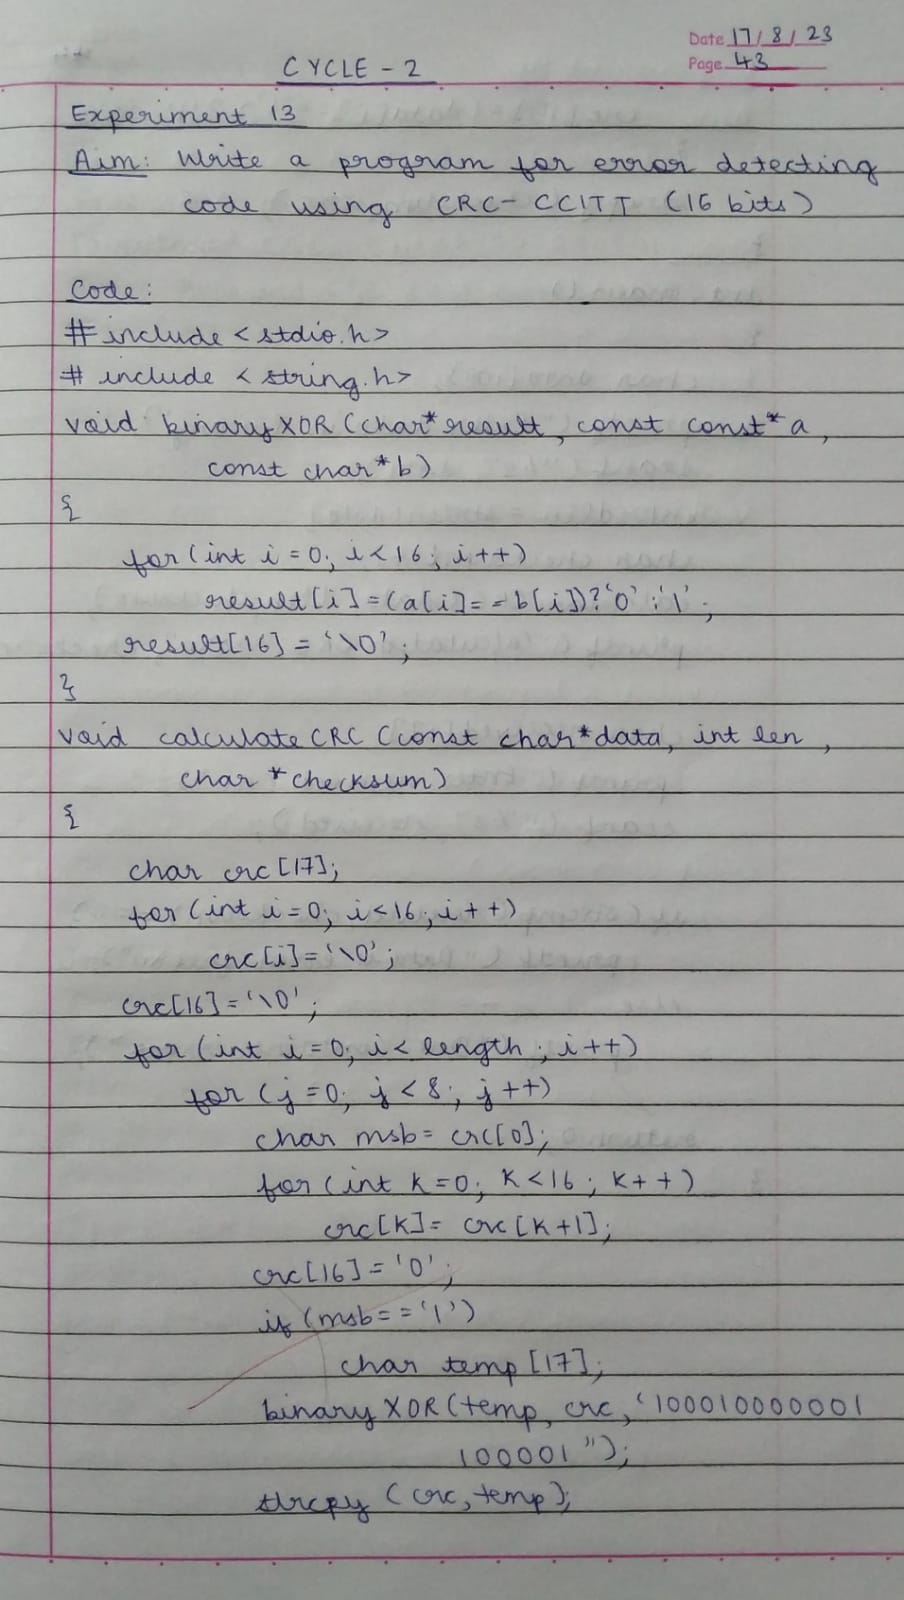 Date 17/8/23
Page 43
CYCLE - 2
Experiment 13
Aim: Write a program for error detecting
code using CRC- CCITT (16 bits)
Code:
# include <stdio.h>
# include <string.h>
void binaryXOR (char* result, const const* a,
const char* b)
{
for (int i = 0; i < 16; i++)
result[i] = (a[i] == b[i]) ? '0' : '1';
result[16] = '\0';
}
void calculateCRC (const char* data, int len,
char * checksum)
{
char crc [17];
for (int i=0; i<16; i++)
crc[i] = '\0';
crc[16] = '\0';
for (int i = 0; i < length; i++)
for (j = 0; j < 8; j++)
char msb = crc[0];
for (int k=0; k<16; k++)
crc[k] = crc [k+1];
crc[16] = '0';
if (msb == '1')
char temp [17];
binaryXOR (temp, crc, '100010000001
100001");
strcpy (crc, temp);